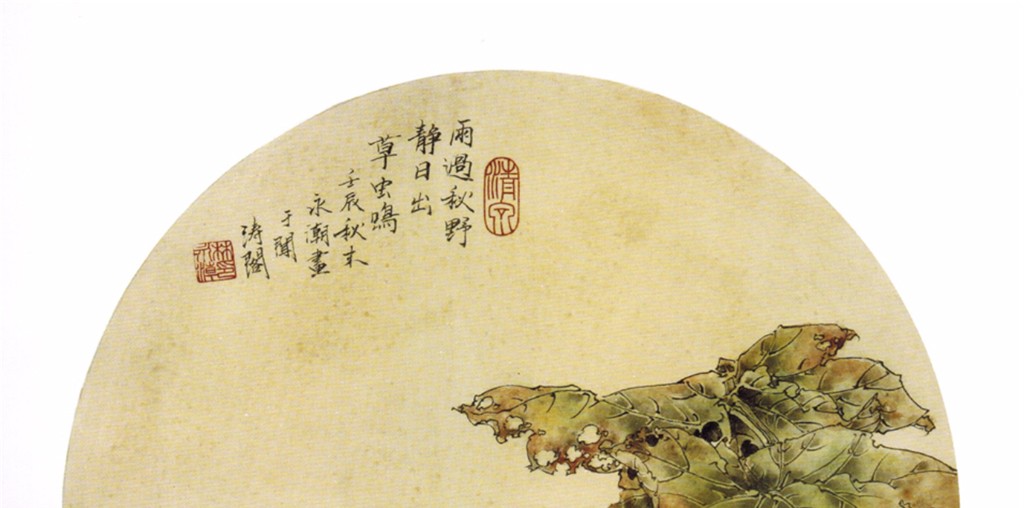 雨過秋野
静日出
草虫鳴
壬辰秋末
永潮畫
于聞
涛閣